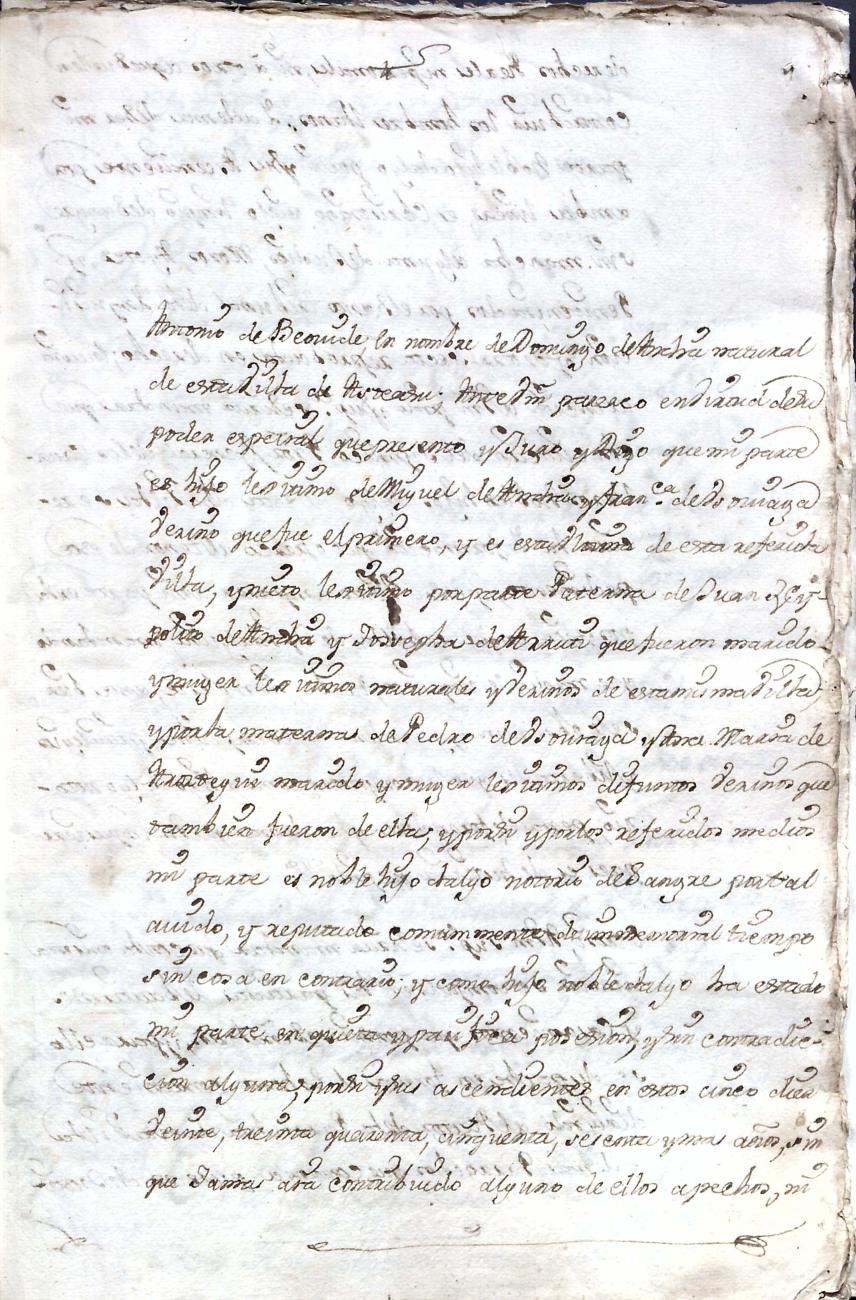 Antonio de Beovide, en nombre de Domingo de Ancha natural
de esta Villa de Asteasu. Ante Vm parezco en virtud de su
poder espezial que presento y Juro y Digo que mi parte
es hijo lexitimo de Miguel de Ancha, y Fran.ca de
Vezino que fue el primero, y es esta Vezina de esta referida
Villa, y nieto lexitimo por parte Paterna de Juan Ypp
polito de Ancha y Josepha de Arruti que fueron marido
y muger lexitimos naturales y Vezinos de esta misma Villa
y por la materna de Pedro de y Ana Maria de
marido y muger lexitimos difuntos Vezinos que
tambien fueron de ella, y por si y por los referidos medios
mi parte es noble hijo dalgo notorio de Sangre por tal
auido, y reputado comunmente de immemorial tiempo
sin cosa en contrario; y como hijo noble dalgo ha estado
mi parte, en quieta y pacifica posesion, y sin contradic-
cion alguna, por si y sus ascendientes en estos cinco diez
Veinte, treinta quarenta, cinquenta, sesenta y mas años, sin
que Jamas aia contribuido alguno de ellos a pechos, ni